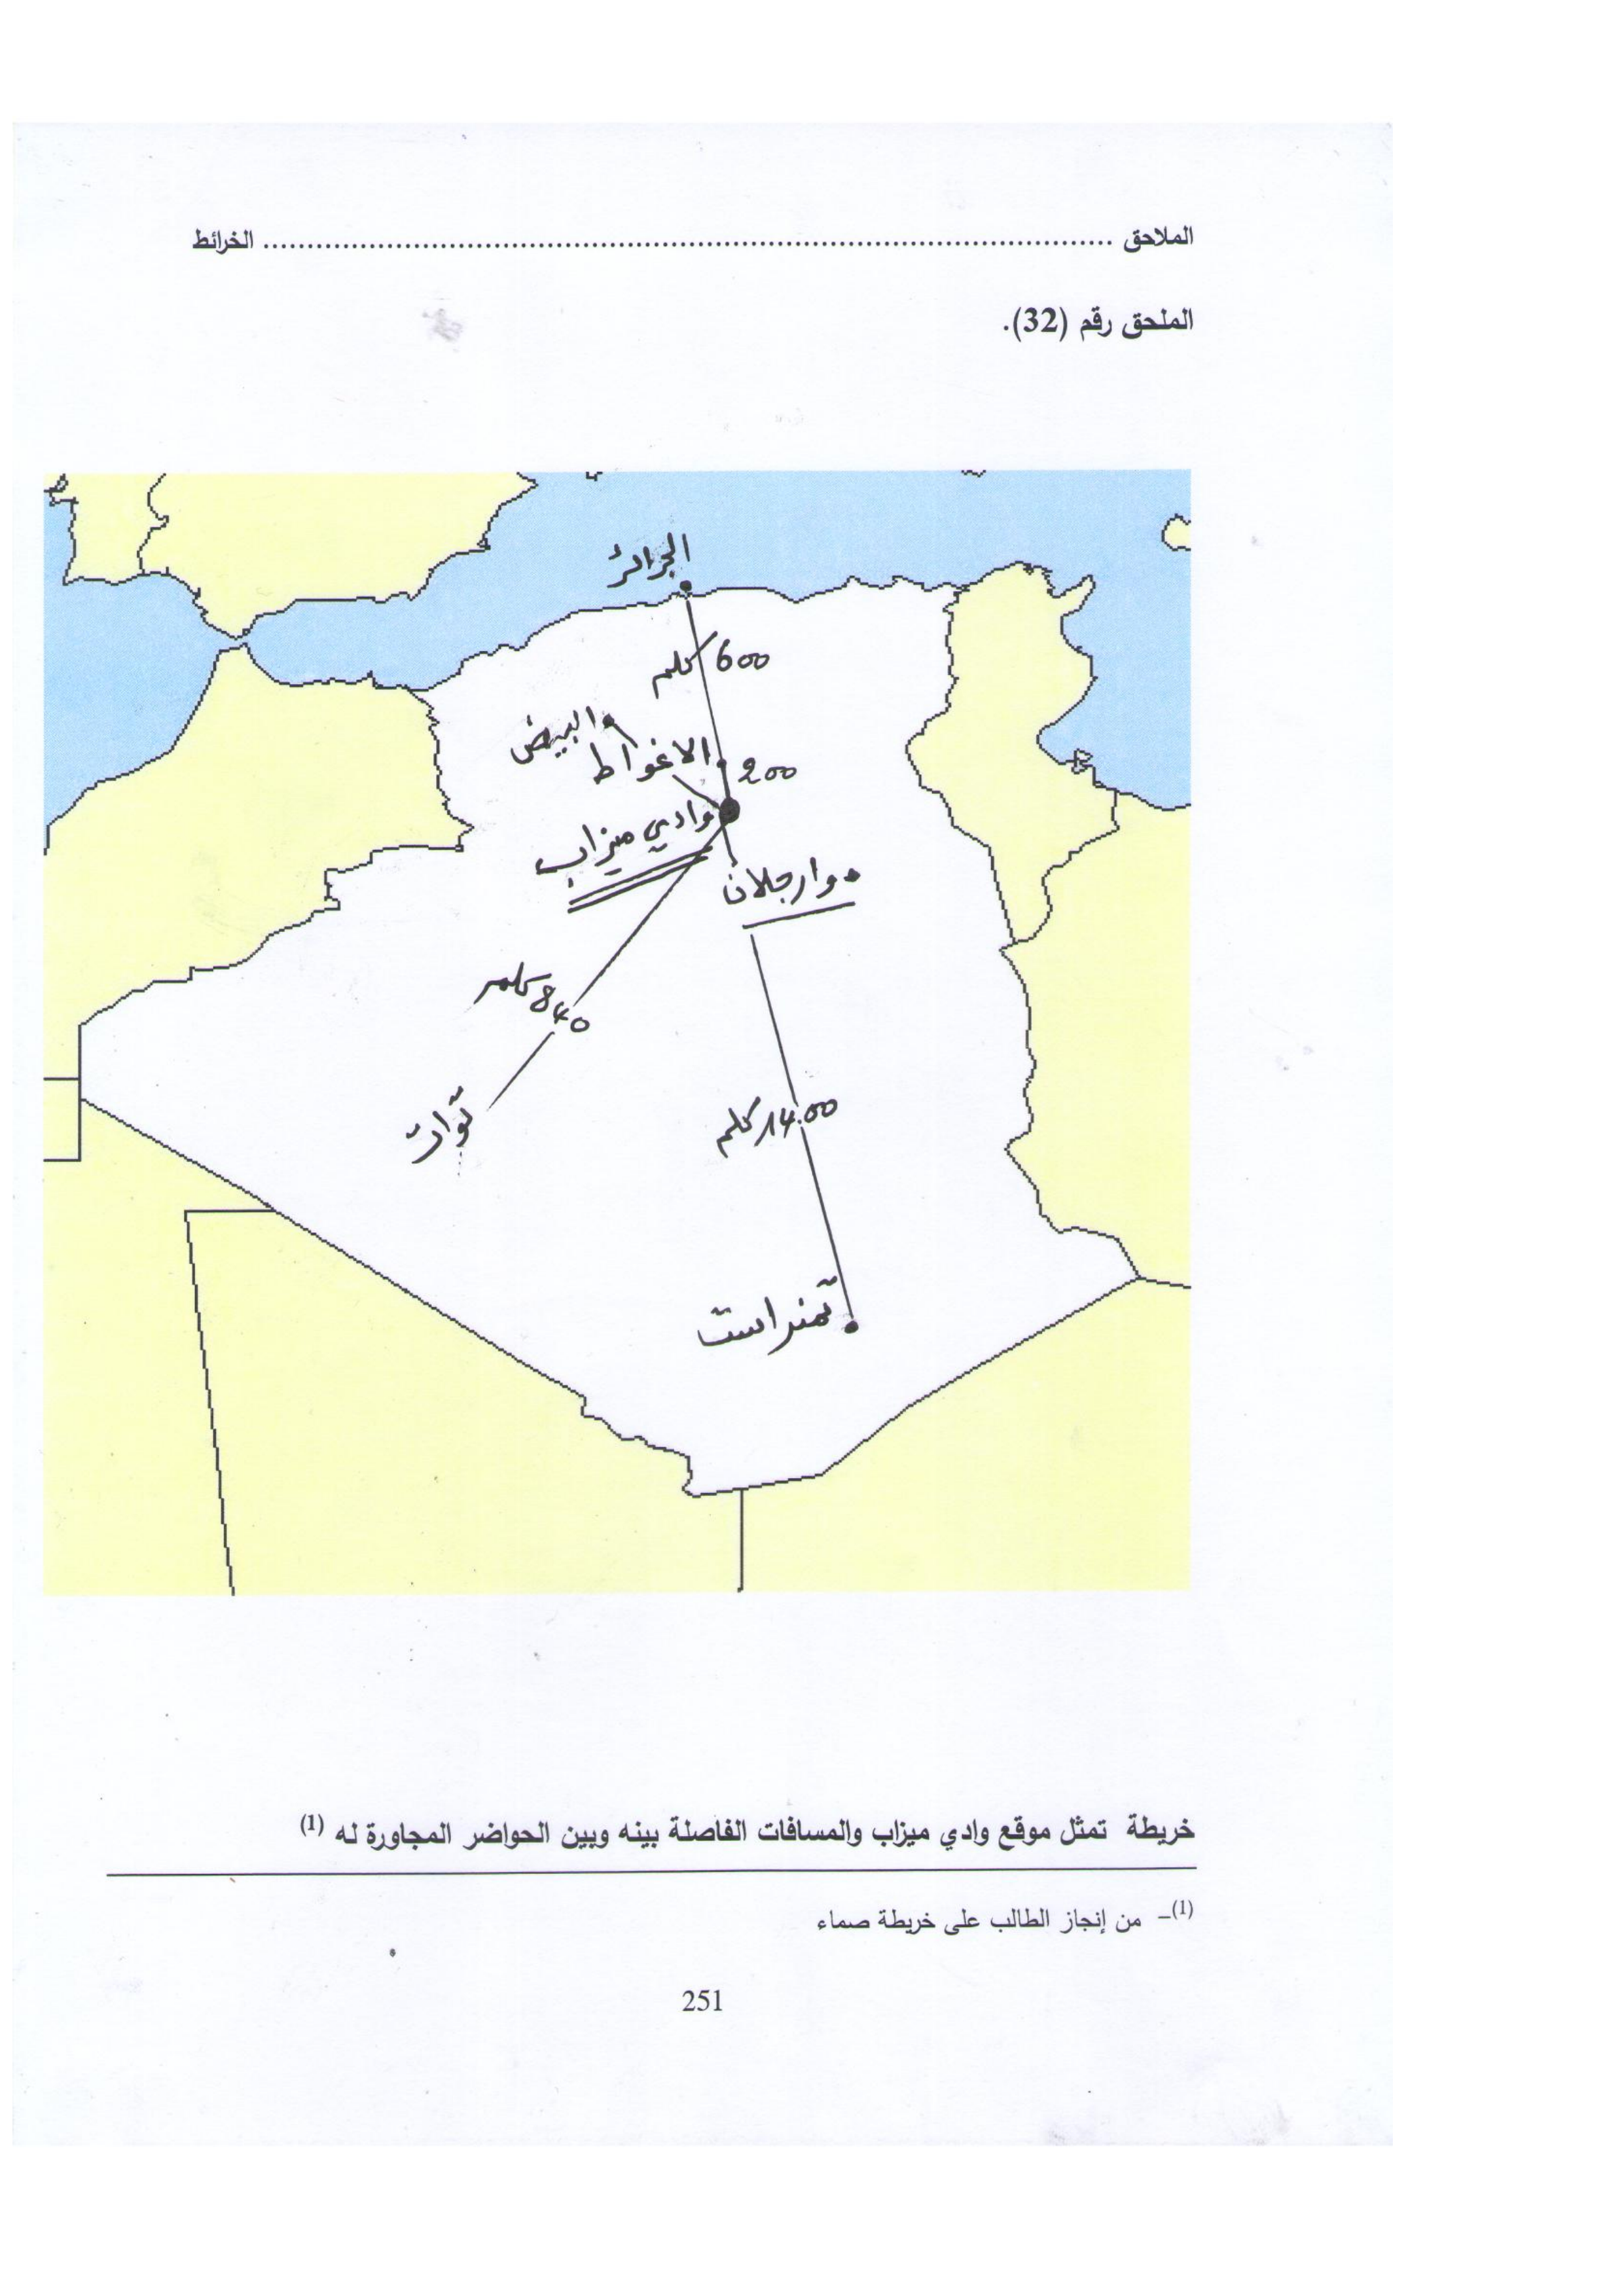 الملاحق ................................................................................................ الخرائط
الملحق رقم (32).
الجزائر
600 كلم
البيض
الاغواط
200
وادي ميزاب
وارجلان
840 كلم
توات
1400 كلم
تمنراست
خريطة تمثل موقع وادي ميزاب والمسافات الفاصلة بينه وبين الحواضر المجاورة له (1)
(1)– من إنجاز الطالب على خريطة صماء
251